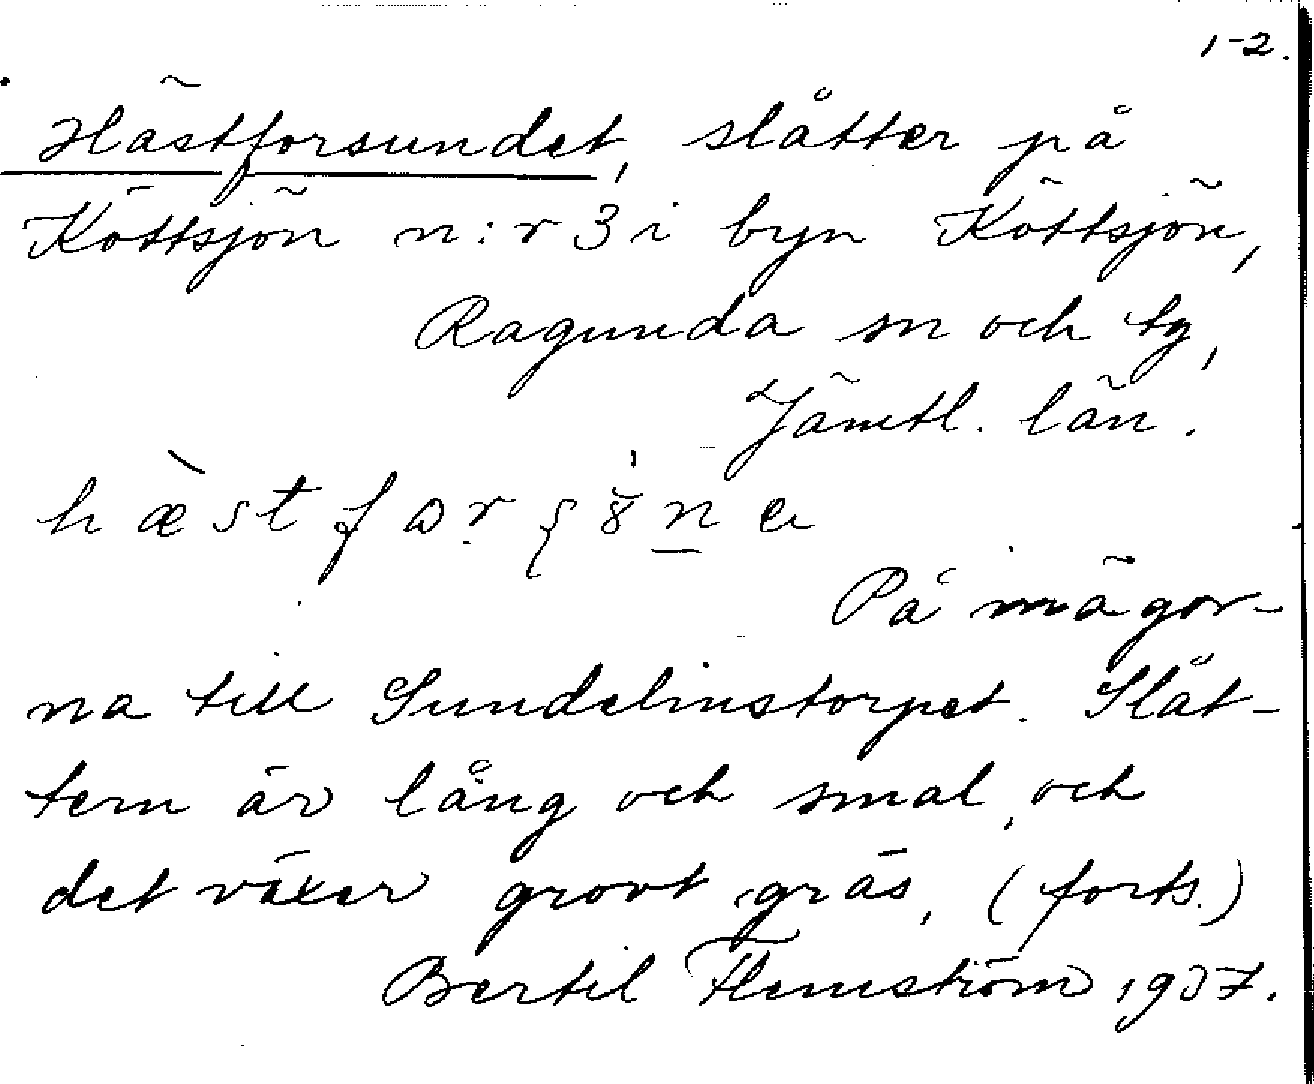 1-2.
Hästforsundet, slåtter på
Köttsjön n:r 3 i byn Köttsjön,
Ragunda sn och tg,
Jämtl. län.
På mägor-
na till Sundelinstorpet. Slåt-
tern är lång och smal, och
det växer grovt gräs, (forts.)
Bertil Flemström 1937.